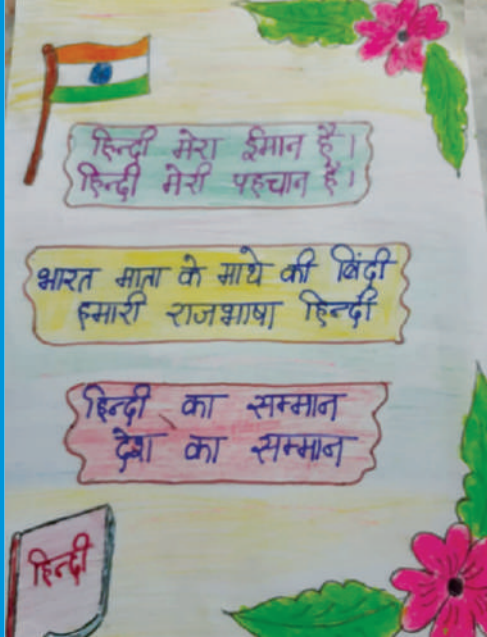 हिन्दी मेरा ईमान है।
हिन्दी मेरी पहचान है।
भारत माता के माथे की बिंदी
हमारी राजभाषा हिन्दी
हिन्दी का सम्मान
देश का सम्मान
हिन्दी